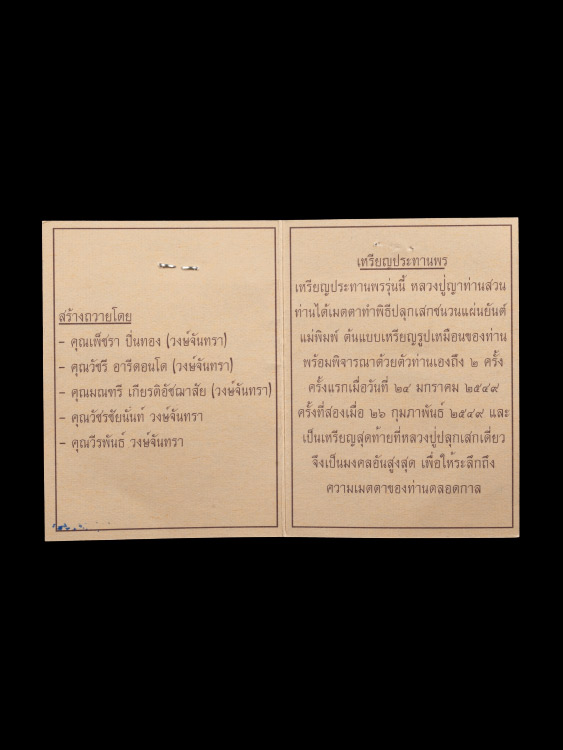 สร้างถวายโดย
– คุณเพ็ชรา ปิ่นทอง (วงษ์จันทรา)
– คุณวัชรี อารีดอนโด (วงษ์จันทรา)
– คุณมณฑรี เกียรติอัชฌาสัย (วงษ์จันทรา)
– คุณวัชรชัยนันท์ วงษ์จันทรา
– คุณวีรพันธ์ วงษ์จันทรา
เหรียญประทานพร
เหรียญประทานพรรุ่นนี้ หลวงปู่ญาท่านสวน
ท่านได้เมตตาทำพิธีปลุกเสกชนวนแผ่นยันต์
แม่พิมพ์ ต้นแบบเหรียญรูปเหมือนของท่าน
พร้อมพิจารณาด้วยตัวท่านเองถึง ๒ ครั้ง
ครั้งแรกเมื่อวันที่ ๒๔ มกราคม ๒๕๔๙
ครั้งที่สองเมื่อ ๒๖ กุมภาพันธ์ ๒๕๔๙ และ
เป็นเหรียญสุดท้ายที่หลวงปู่ปลุกเสกเดี่ยว
จึงเป็นมงคลอันสูงสุด เพื่อให้ระลึกถึง
ความเมตตาของท่านตลอดกาล